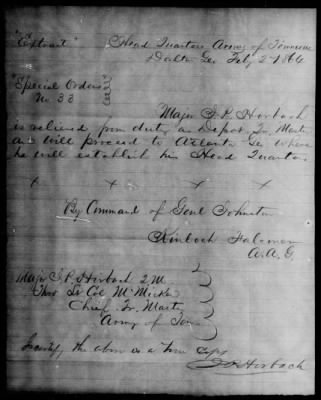 "Extract" Head Quarters Army of Tennessee
Dalton Ga Feby 2 1864
"Special Orders
No 33
Major J. P. Horbach
is relieved from duty as Depot Qr Master
and will proceed to Atlanta Ga where
he will establish his Head Quarters
x x x x
By Command of Genl Johnston
Kinloch Falconer
A.A.G.
Major J. P. Horbach Q.M.
Thro Lt Col McMicken
Chief Qr Master
Army of Ten
I certify the above is a true copy
J P Horbach